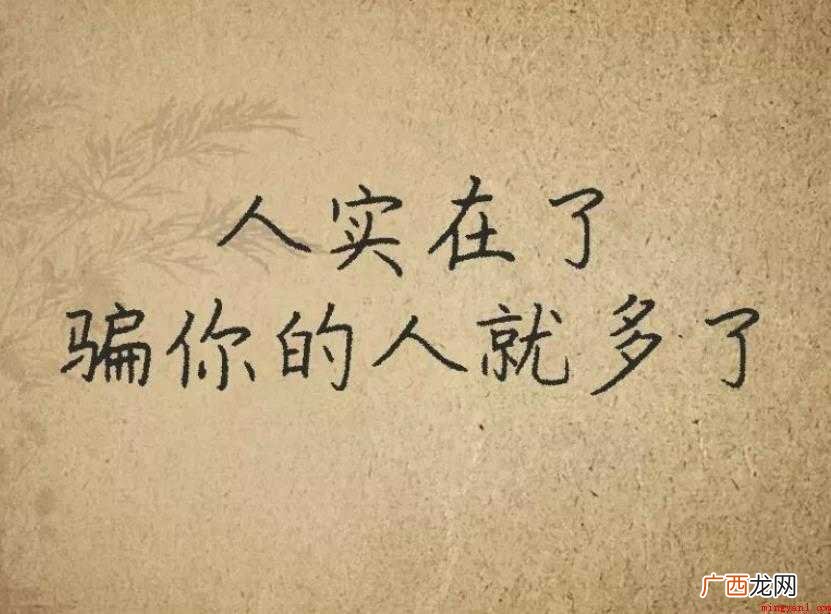 人实在了
骗你的人就多了
广西龙网
mingyan1.com